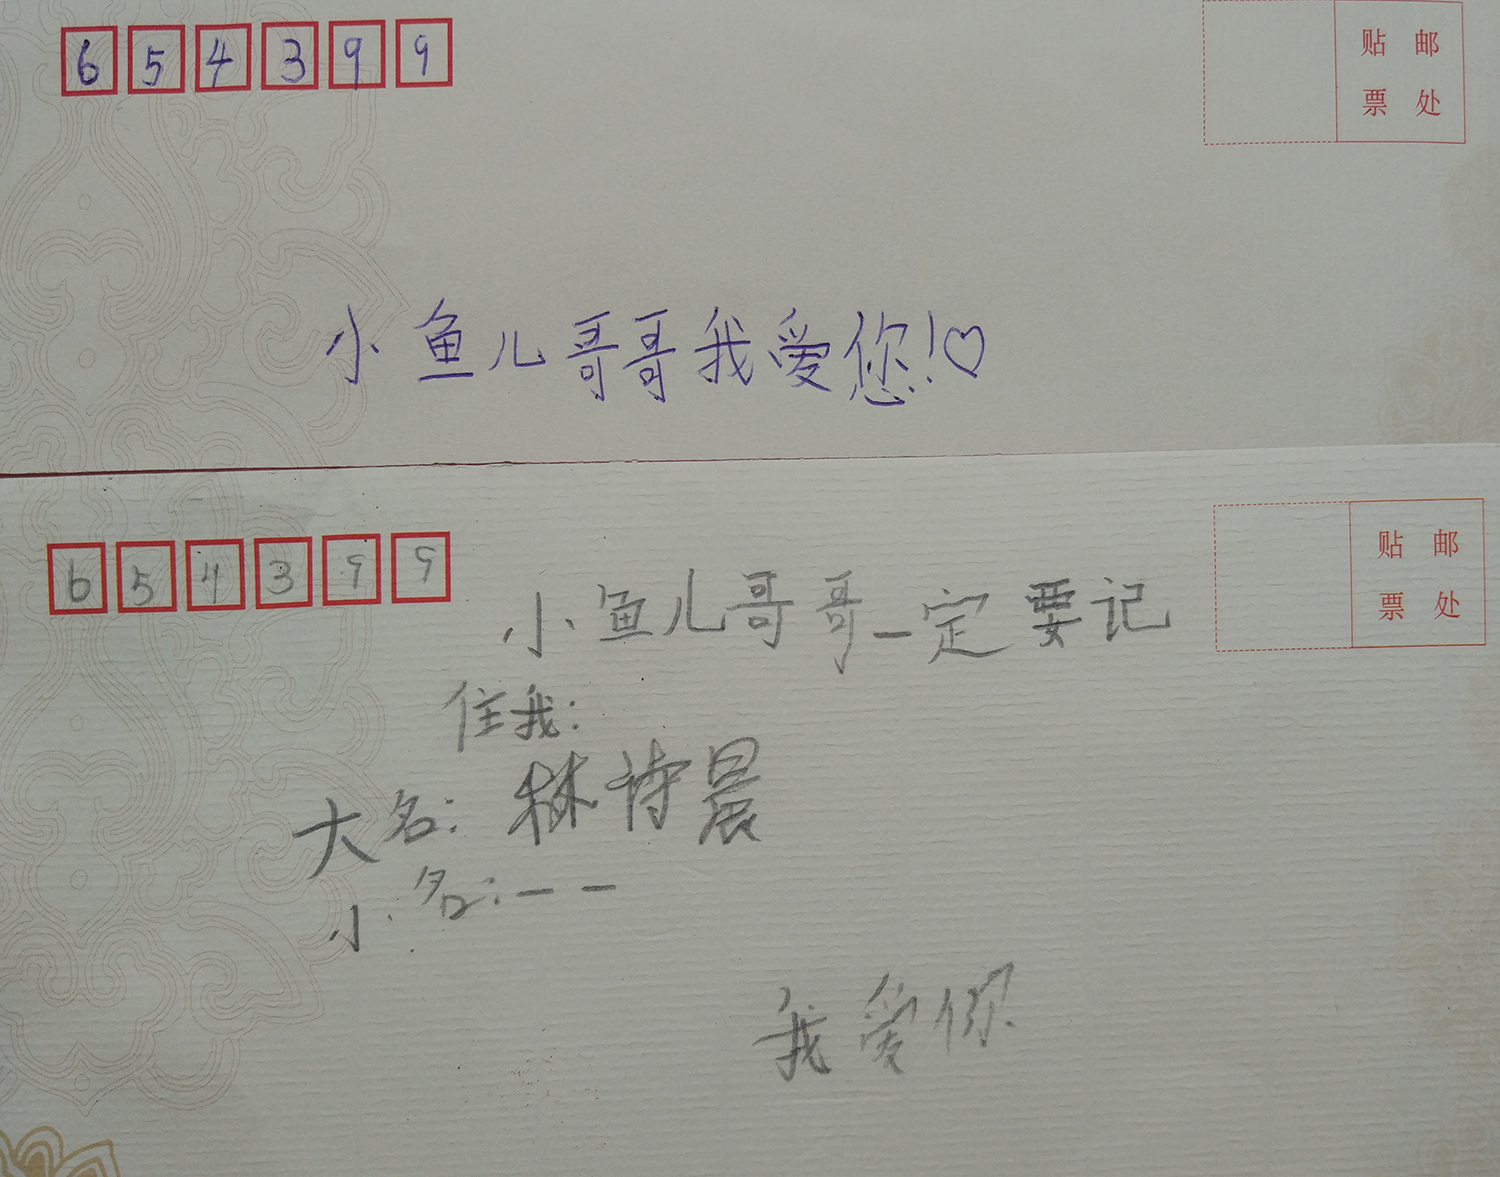 654399
贴 邮
票 处
小鱼儿哥哥我爱您!♡
654399
贴 邮
票 处
小鱼儿哥哥一定要记
住我:
大名:林诗晨
小名:一一
我爱你